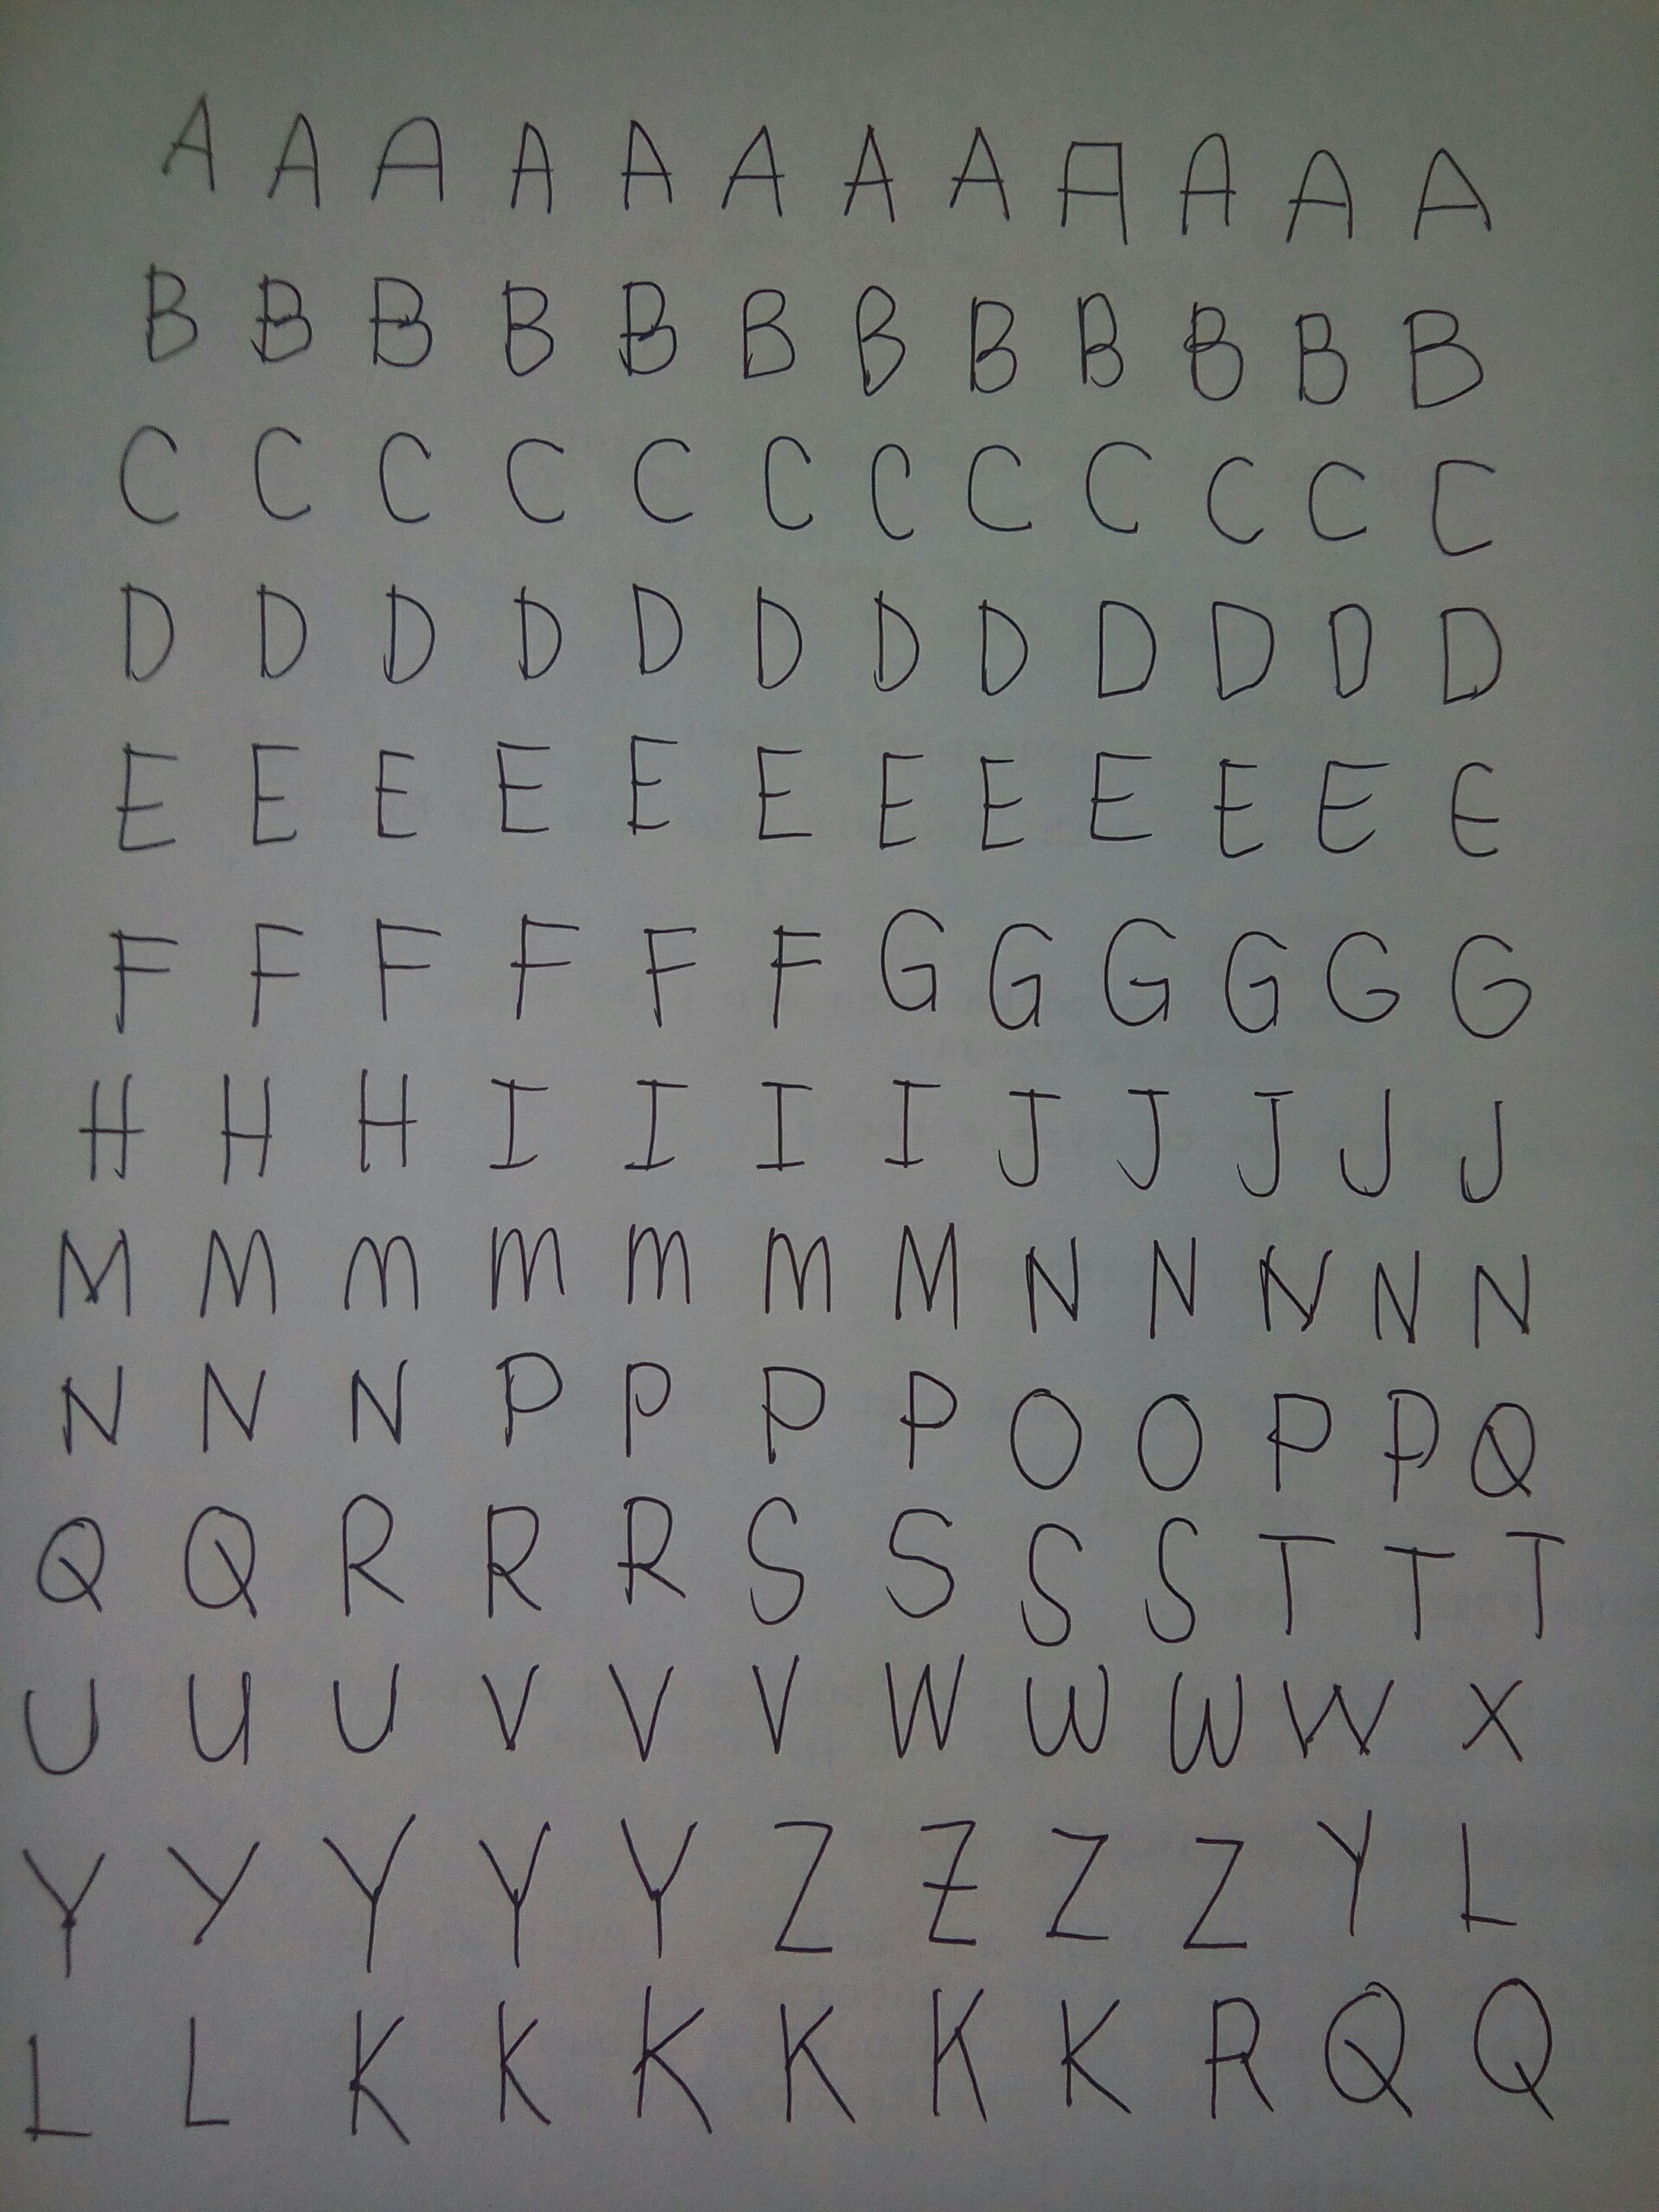 A A A A A A A A A A A A
B B B B B B B B B B B B
C C C C C C C C C C C C
D D D D D D D D D D D D
E E E E E E E E E E E E
F F F F F F G G G G G G
H H H I I I I J J J J J
M M M M M M M N N N N N
N N N P P P P O O P P Q
Q Q R R R S S S S T T T
U U U V V V W W W W X
Y Y Y Y Y Z Z Z Z Y L
L L K K K K K K R Q Q